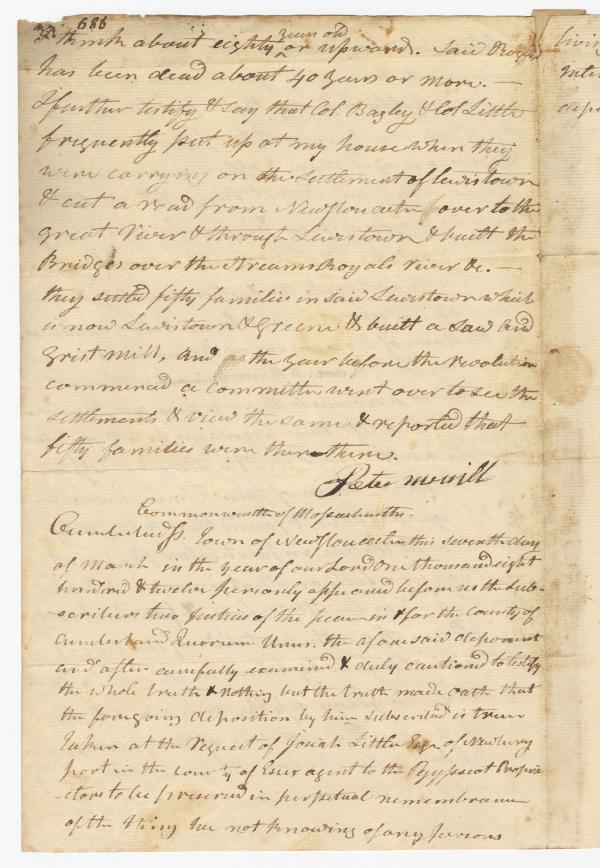 686
I think about eighty years old or upward. Said Royal
has been dead about 40 years or more. —
I further testify & say that Col. Bagley & Col Little
frequently put up at my house when they
were carrying on the settlement of Lewistown
& cut a road from NewGloucester over to the
great River & through Lewistown & built the
Bridges over the streams Royals river &c. —
they settled fifty families in said Lewistown which
is now Lewistown & Greene & built a saw and
Grist mill, and the year before the revolution
commenced a committee went over to see the
settlements & view the same & reported that
fifty families were then there.
Peter Merrill
Commonwealth of Massachusetts.
Cumberland Ss. Town of NewGloucester this seventh day
of March in the year of our Lord one thousand eight
hundred & twelve personly appeared before us the sub-
scribers two Justices of the peace in & for the County of
Cumberland Quorum Unus. the aforesaid deponent
and after carefully examined & duly cautioned to testify
the whole truth & nothing but the truth made oath that
the foregoing deposition by him subscribed is true
Taken at the request of Josiah Little Esqr of Newbury
port in the county of Essex agent to the Pejypscot Proprie
-etors to be preserved in perpetual remembrance
of the thing we not knowing of any persons
livin
inte
depo